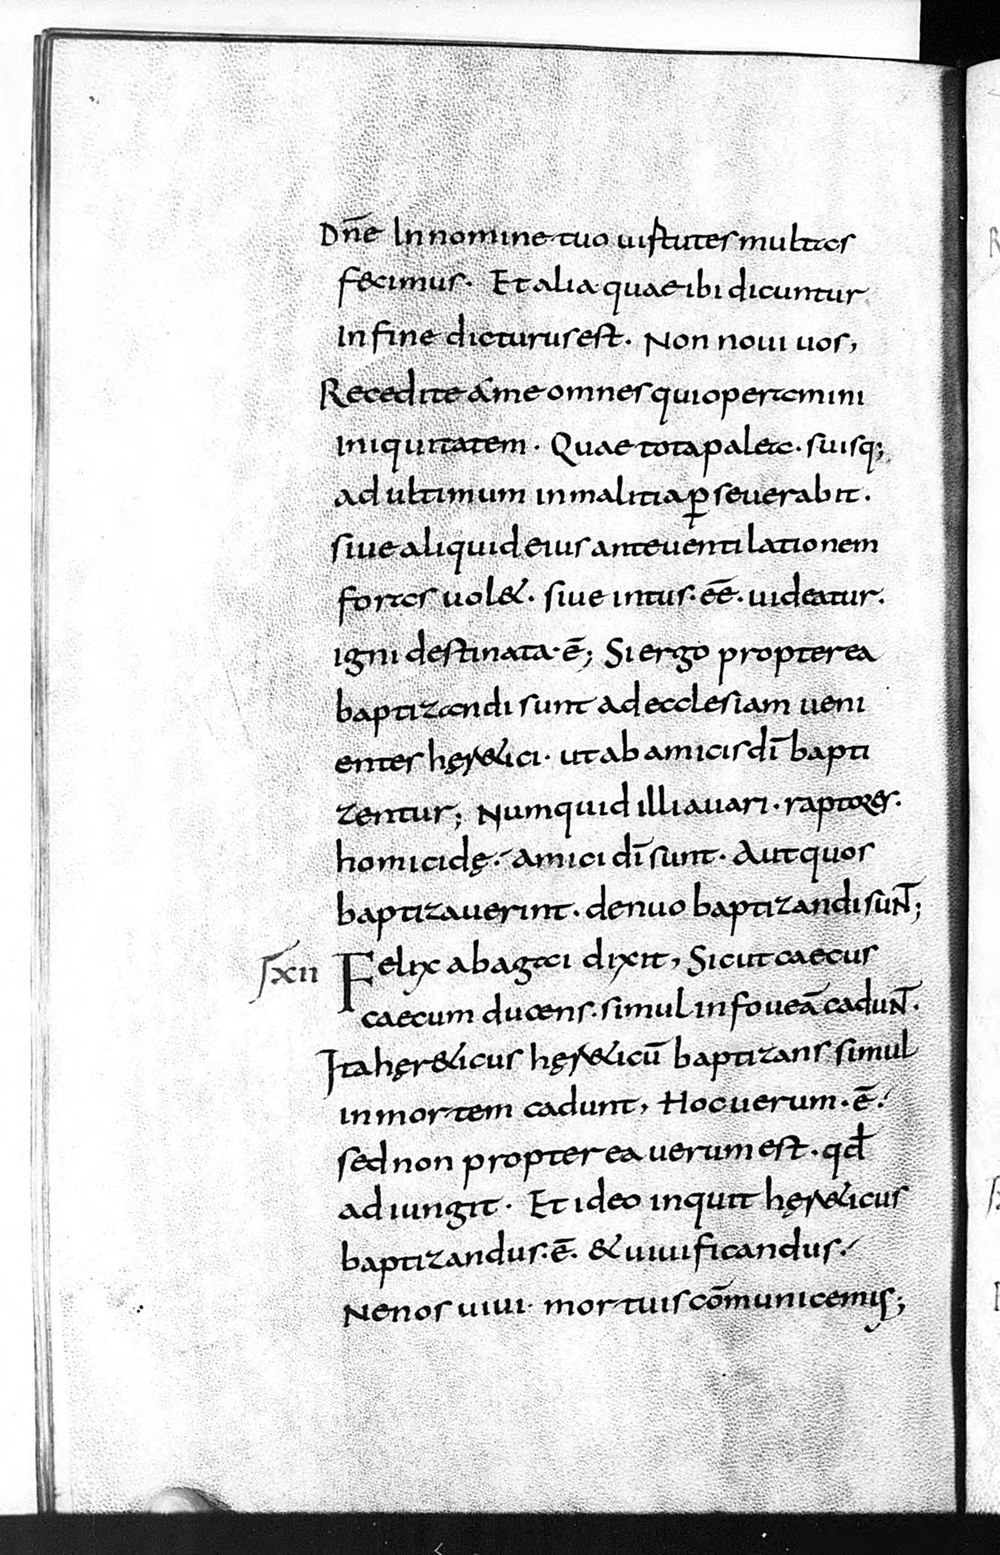 Dn̄e In nomine tuo uirtutes multas
fecimus· Et alia quae ibi dicuntur
In fine dicturus est· Non noui uos,
Recedite a me omnes qui operamini
iniquitatem· Quae tota palea· suisq;
ad ultimum in malitia p̱seuerabit·
siue aliquid eius ante uentilationem
foras uol&· siue intus· eē· uideatur·
igni destinata· ē; Si ergo propterea
baptizandi sunt ad ecclesiam ueni
entes hęr&ici· ut ab amicis dī bapti
zentur; Numquid illi auari· raptores·
homicidę· amici dī sunt· Aut quos
baptizauerint· denuo baptizandi suNT;
SXII Felix abagai dixit, Sicut caecus
caecum ducens· simul in foueā caduNT·
Ita hęr&icus hęr&icū baptizans simul
in mortem cadunt, Hoc uerum· ē·
sed non propterea uerum est· qd̄
adiungit· Et ideo inquit hęr&icus
baptizandus· ē· & uiuificandus·
Ne nos uiui· mortuis cōmunicemus;